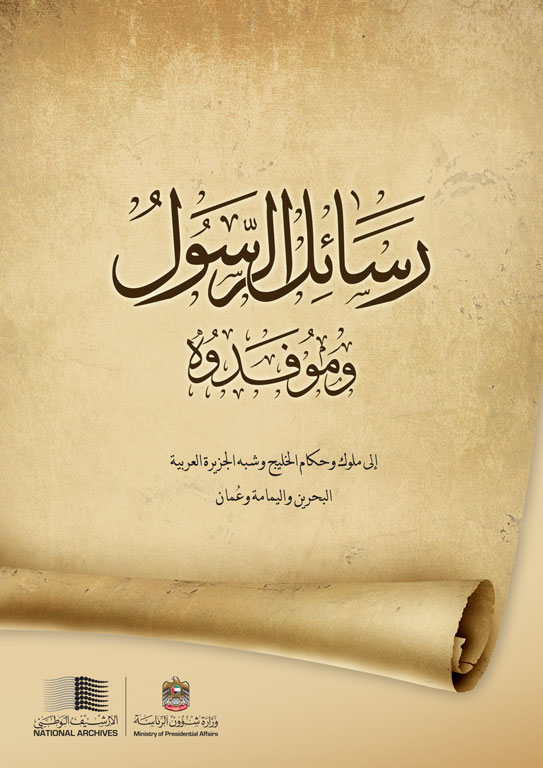 رَسَائِل الرَّسُولُ
وَمُوفَدُوهُ
إلى ملوك وحكام الخليج وشبه الجزيرة العربية
البحرين واليمامة وعُمان
الأرشيف الوطني
NATIONAL ARCHIVES
وزارة شؤون الرئاسة
Ministry of Presidential Affairs